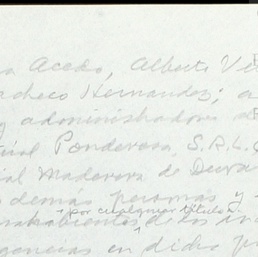 a Acedo, Alberto Ve
acheco Hernandez; a
y administradores d
rial Ponderosa, S.R.L.
ial Maderera de Dura
demás personas y
por cualquier título
trabahabientes de los
gencias en dicho p